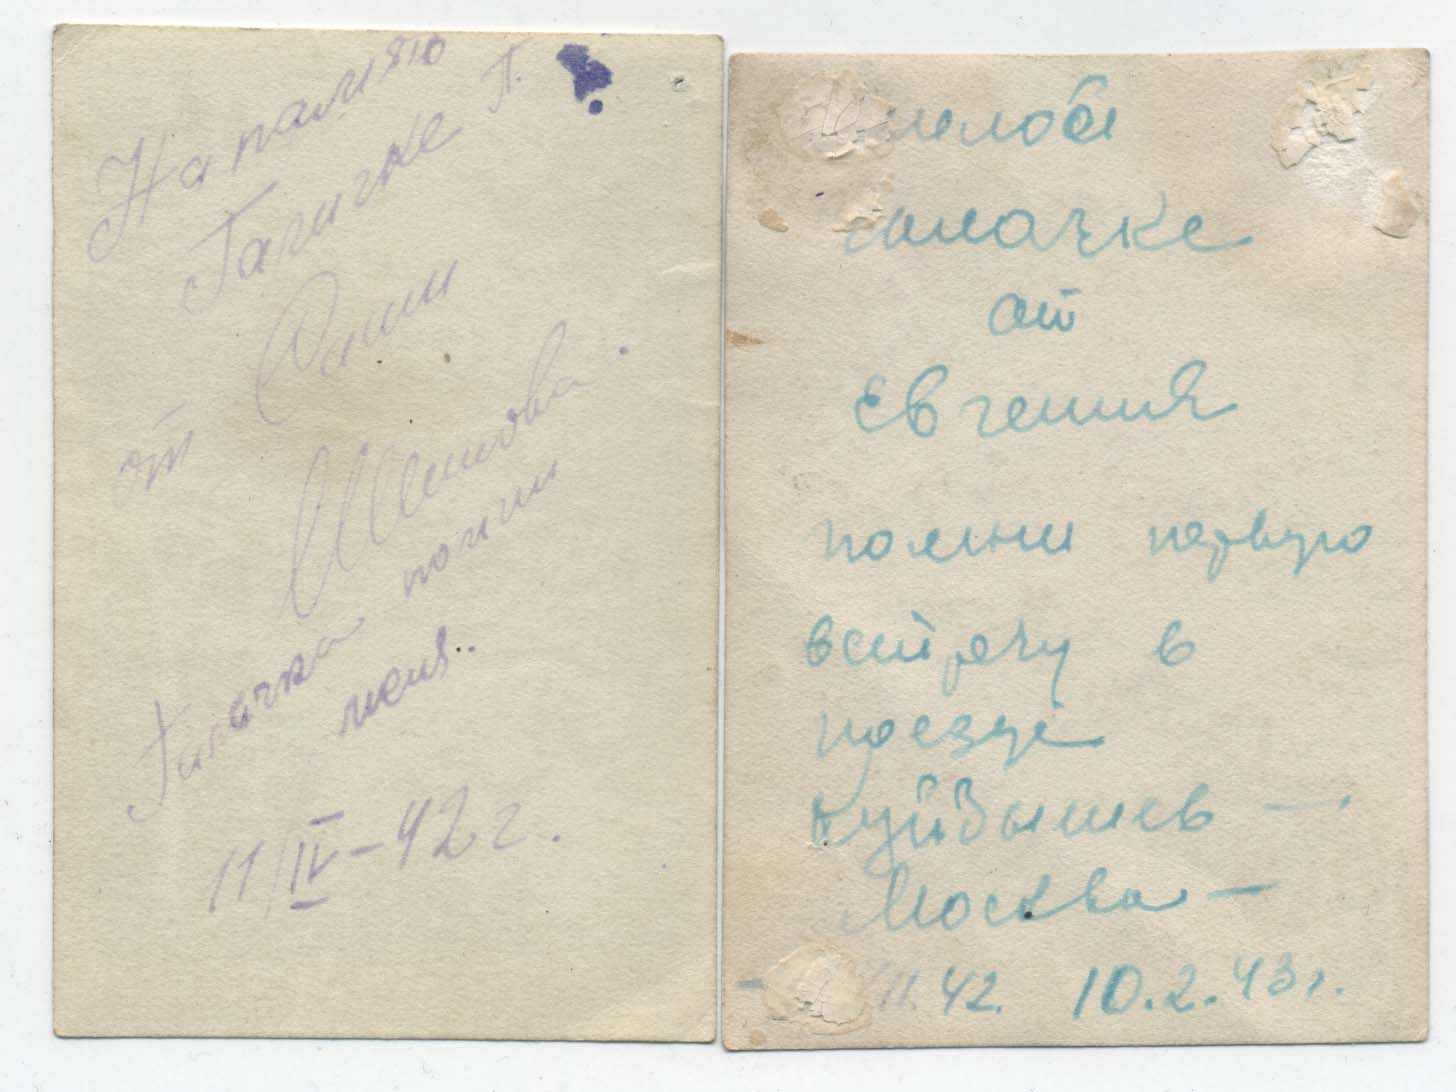 На память
Галичке П.
от
Шенцова.
Галочка помни
меня..
11/IV-42 г.
Галочке
от
Евгения
помни первую
встречу в
поезде
Куйбышев —
Москва —
42. 10.2.43г.